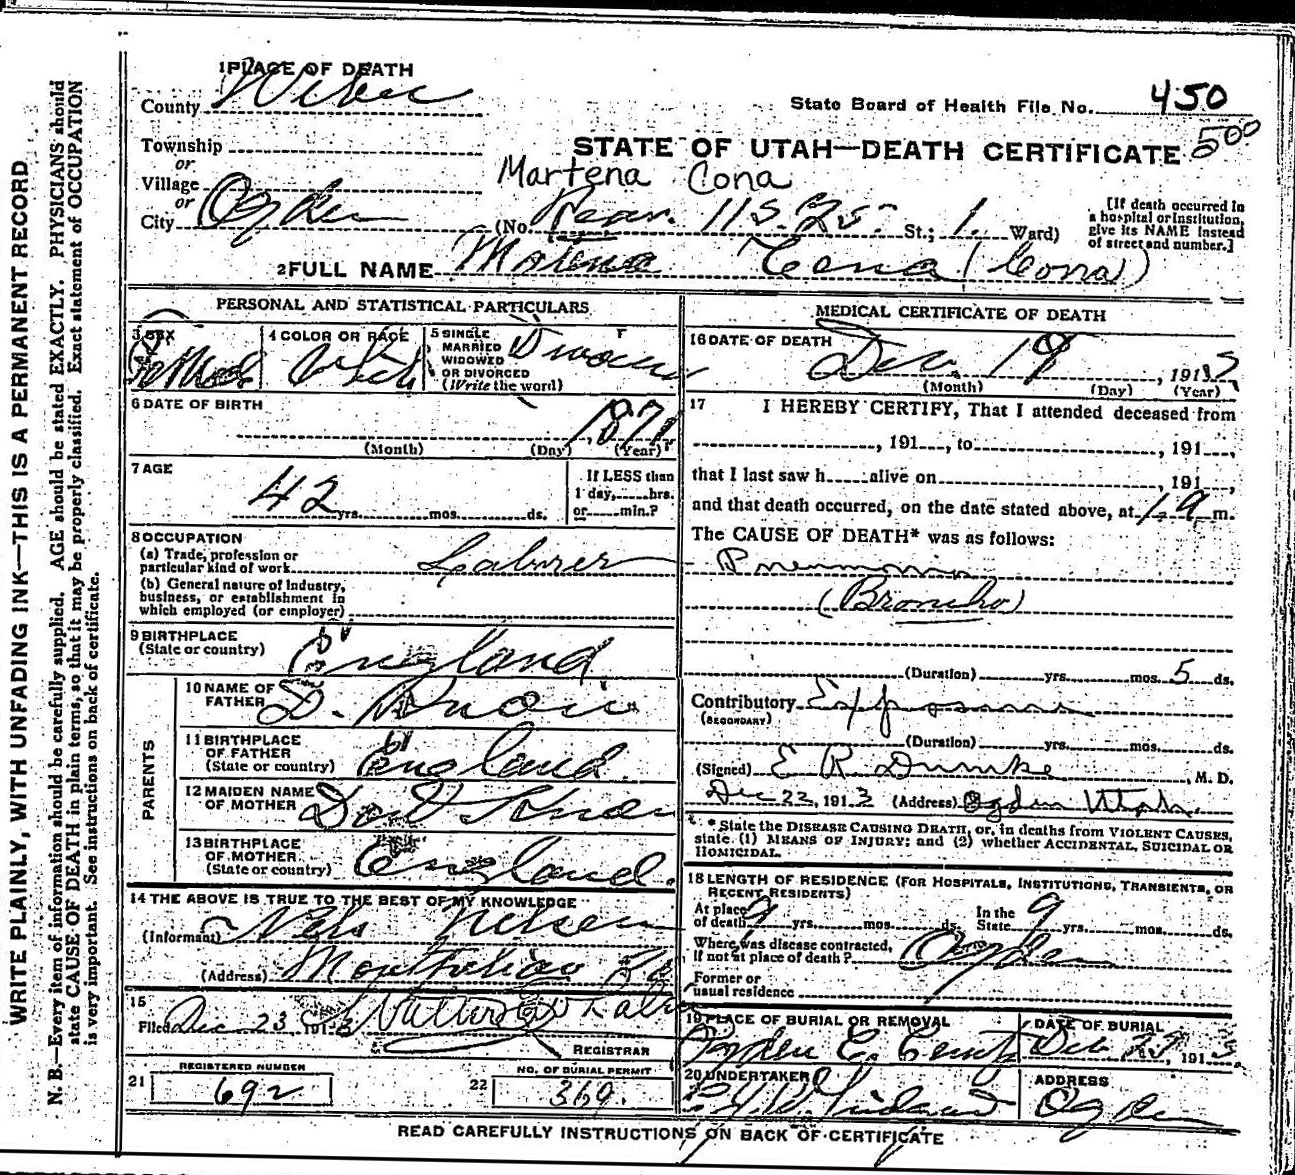 WRITE PLAINLY, WITH UNFADING INK—THIS IS A PERMANENT RECORD
N. B.—Every item of information should be carefully supplied. AGE should be stated EXACTLY. PHYSICIANS should
state CAUSE OF DEATH in plain terms, so that it may be properly classified. Exact statement of OCCUPATION
is very important. See instructions on back of certificate.
1 PLACE OF DEATH
County Weber
State Board of Health File No. 450
500
Township
or
Village
or
City Ogden
STATE OF UTAH—DEATH CERTIFICATE
Martena Cona
(No. Rear 115. 25 St.; 1. Ward)
[If death occurred in
a hospital or institution,
give its NAME instead
of street and number.]
2 FULL NAME Cena (Cona)
PERSONAL AND STATISTICAL PARTICULARS
3 SEX
4 COLOR OR RACE
5 SINGLE
MARRIED
WIDOWED
OR DIVORCED
(Write the word)
F
6 DATE OF BIRTH
1871
(Month) (Day) (Year)
7 AGE
42 yrs. mos. ds.
If LESS than
1 day, hrs.
or min.?
8 OCCUPATION
(a) Trade, profession or
particular kind of work Laborer
(b) General nature of industry,
business, or establishment in
which employed (or employer)
9 BIRTHPLACE
(State or country) England
PARENTS
10 NAME OF
FATHER D.
11 BIRTHPLACE
OF FATHER
(State or country) England
12 MAIDEN NAME
OF MOTHER
13 BIRTHPLACE
OF MOTHER
(State or country) England.
14 THE ABOVE IS TRUE TO THE BEST OF MY KNOWLEDGE
(Informant) Nels Nelsen
(Address)
15
Filed Dec 23 1913
REGISTRAR
21
REGISTERED NUMBER
692
22
NO. OF BURIAL PERMIT
369.
MEDICAL CERTIFICATE OF DEATH
16 DATE OF DEATH
Dec. , 191
(Month) (Day) (Year)
17 I HEREBY CERTIFY, That I attended deceased from
, 191 , to , 191 ,
that I last saw h alive on , 191 ,
and that death occurred, on the date stated above, at m.
The CAUSE OF DEATH* was as follows:
Pneumonia
(Broncho)
(Duration) yrs. mos. 5 ds.
Contributory Exposure
(SECONDARY)
(Duration) yrs. mos. ds.
(Signed) E R Dumke, M. D.
Dec 22, 1913 (Address) Ogden Utah.
* State the DISEASE CAUSING DEATH, or, in deaths from VIOLENT CAUSES,
state (1) MEANS OF INJURY; and (2) whether ACCIDENTAL, SUICIDAL OR
HOMICIDAL.
18 LENGTH OF RESIDENCE (FOR HOSPITALS, INSTITUTIONS, TRANSIENTS, OR
RECENT RESIDENTS)
At place
of death 9 yrs. mos. ds.
In the
State 9 yrs. mos. ds.
Where was disease contracted,
If not at place of death? Ogden
Former or
usual residence
19 PLACE OF BURIAL OR REMOVAL
Ogden C.
DATE OF BURIAL
191
20 UNDERTAKER
ADDRESS
Ogden
READ CAREFULLY INSTRUCTIONS ON BACK OF CERTIFICATE